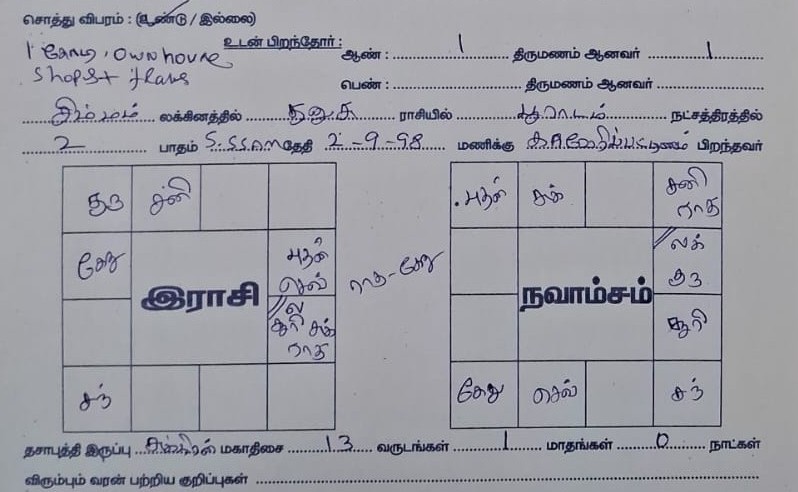 சொத்து விபரம் : (உண்டு / இல்லை)
1 கோடி, own house,
Shops + flats
உடன் பிறந்தோர் : ஆண் : 1 திருமணம் ஆனவர் 1
பெண் : திருமணம் ஆனவர்
சிம்மம் லக்கினத்தில் தனுசு ராசியில் பூராடம் நட்சத்திரத்தில்
2 பாதம் 5.55AM தேதி 2-9-98 மணிக்கு காவேரிப்பட்டிணம் பிறந்தவர்
குரு சனி
கேது
புதன்
செவ்
இராசி
ல
சூரி சுக்
ராகு
சந்
ராகு-கேது
புதன் சுக் சனி
ராகு
லக்
குரு
நவாம்சம்
சூரி
கேது செவ் சந்
தசாபுத்தி இருப்பு சுக்கிரன் மகாதிசை 13 வருடங்கள் 1 மாதங்கள் 0 நாட்கள்
விரும்பும் வரன் பற்றிய குறிப்புகள்